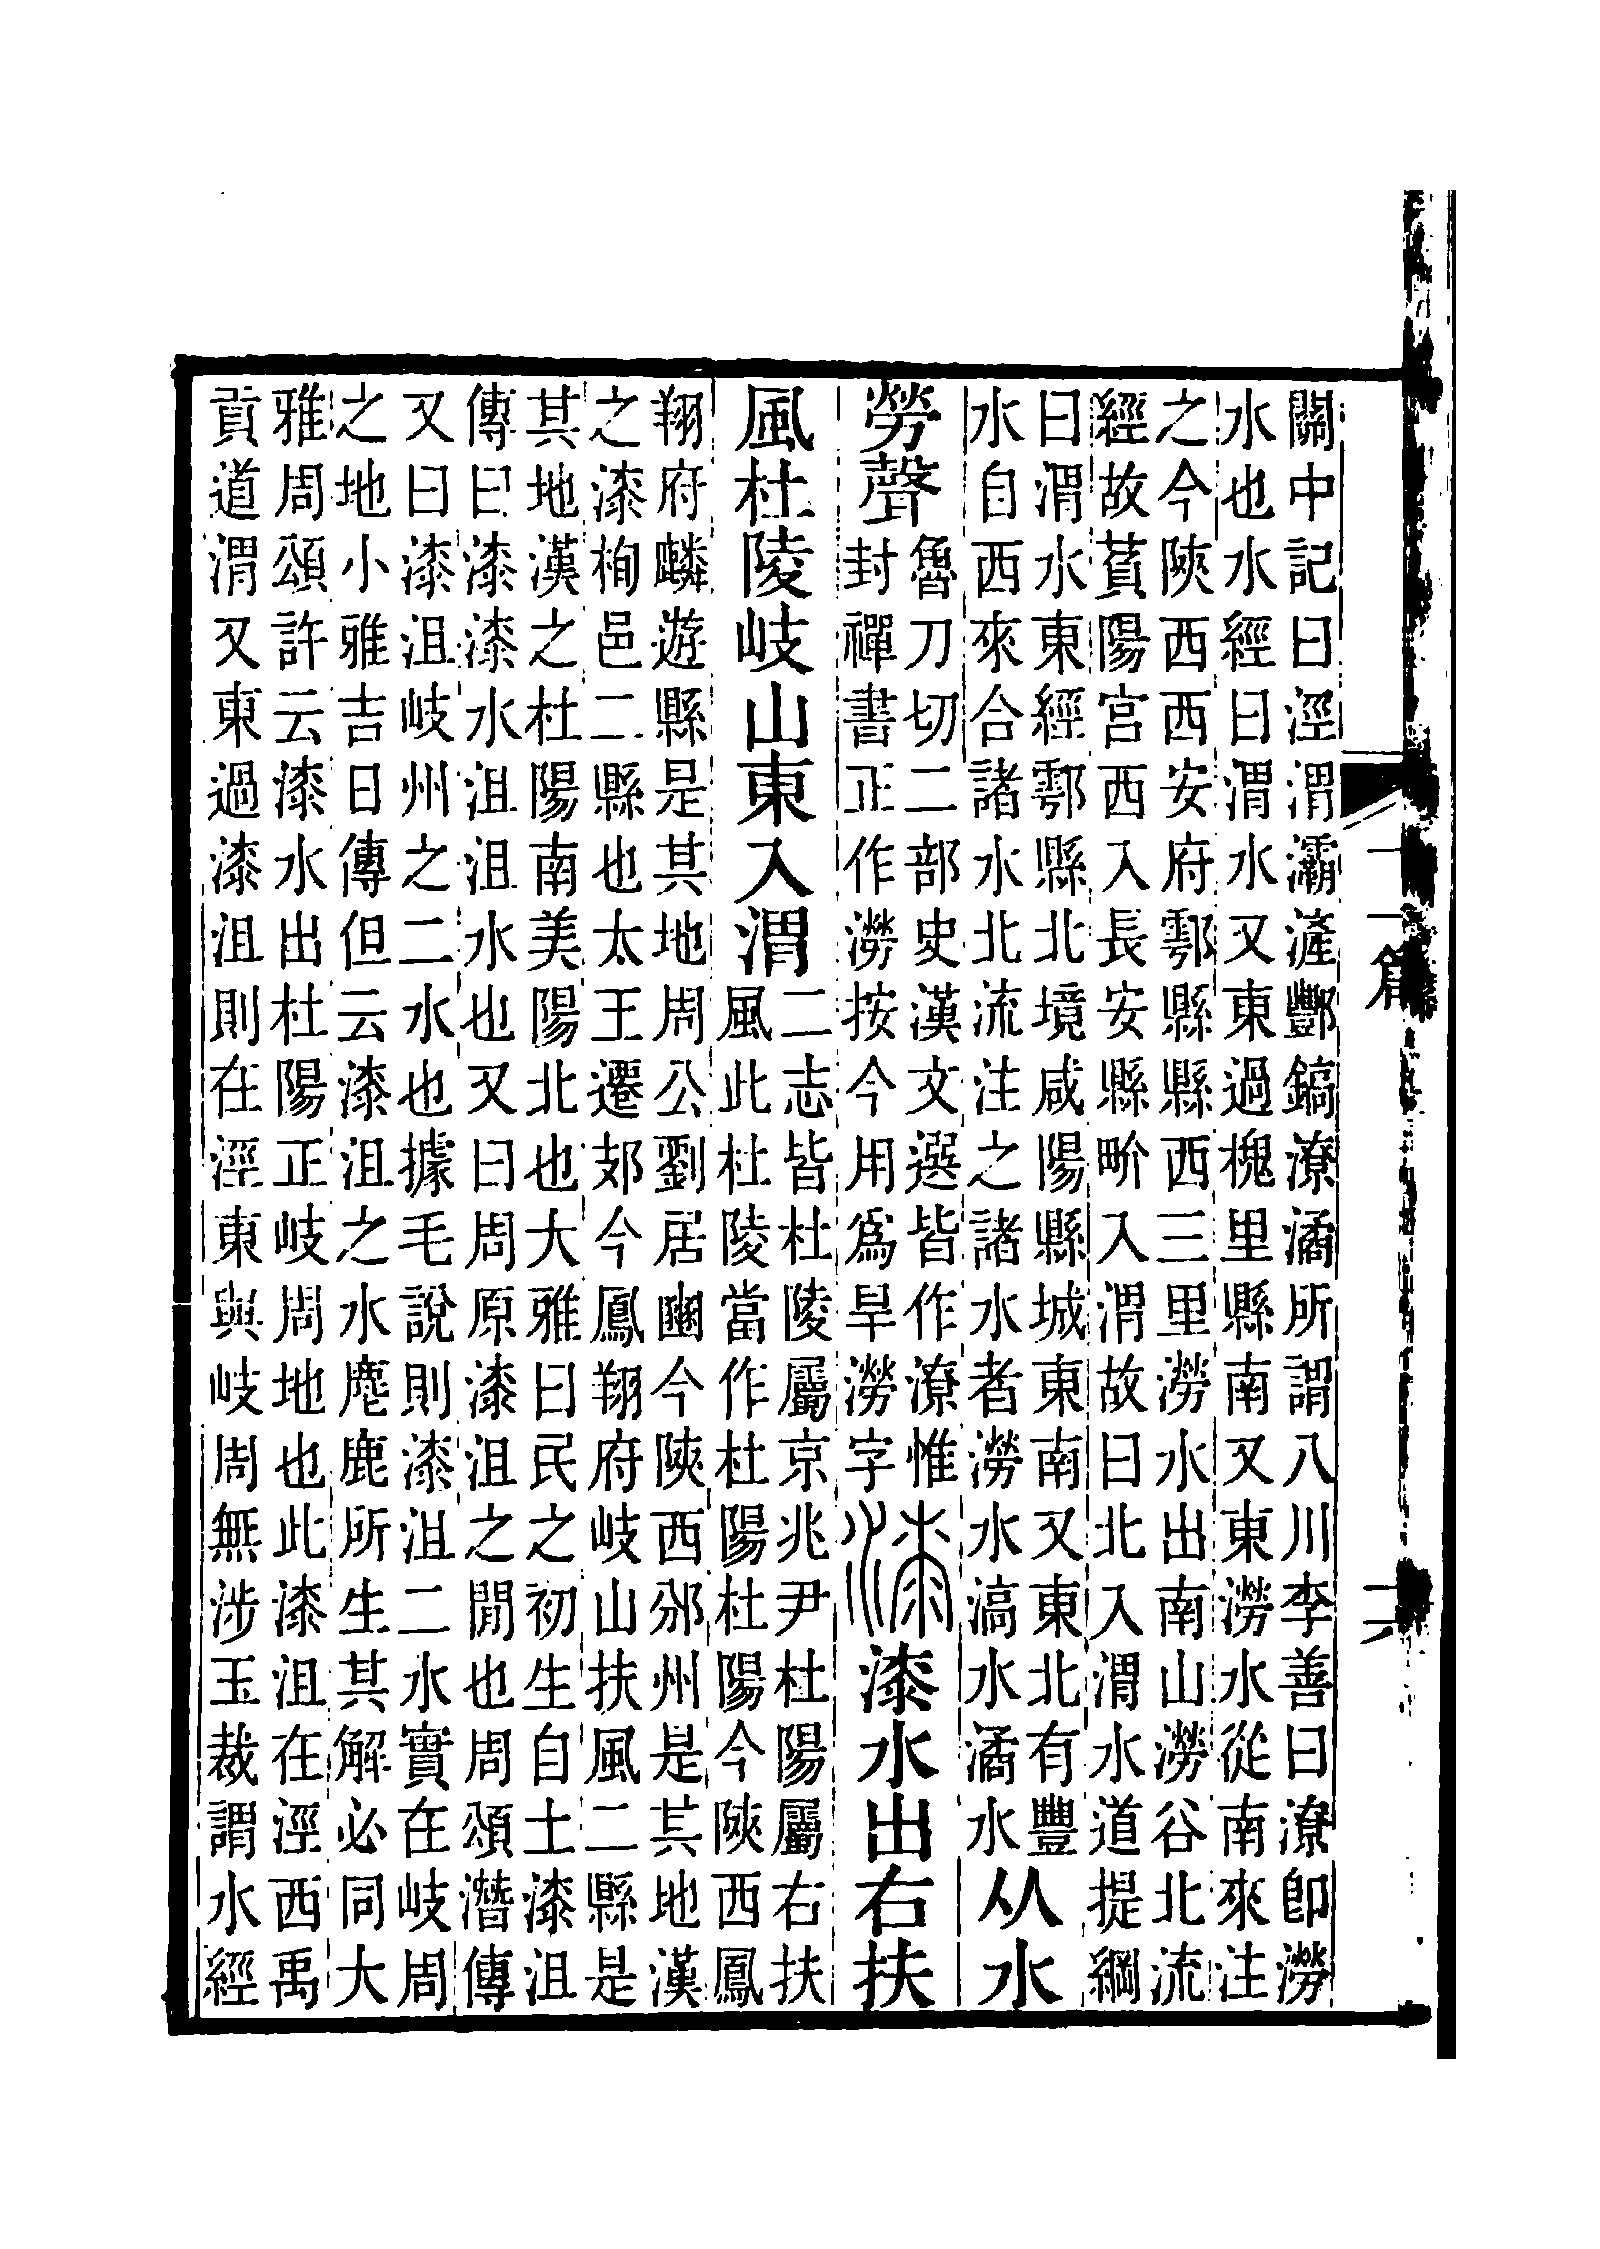 關中記曰涇渭灞滻酆鎬潦潏所謂八川李善曰潦卽澇
水也水經曰渭水又東過槐里縣南又東澇水從南來注
之今陝西西安府鄠縣縣西三里澇水出南山澇谷北流
經故萯陽宮西入長安縣畍入渭故曰北入渭水道提綱
曰渭水東經鄠縣北境咸陽縣城東南又東北有豐
水自西來合諸水北流注之諸水者澇水滈水潏水
从水
勞聲
魯刀切二部史漢文選皆作潦惟
封禪書正作澇按今用爲旱澇字
漆水出右扶
風杜陵岐山東入渭
二志皆杜陵屬京兆尹杜陽屬右扶
風此杜陵當作杜陽杜陽今陝西鳳
翔府麟遊縣是其地周公劉居豳今陝西邠州是其地漢
之漆栒邑二縣也太王遷𨙸今鳳翔府岐山扶風二縣是
其地漢之杜陽南美陽北也大雅曰民之初生自土漆沮
傳曰漆漆水沮沮水也又曰周原漆沮之閒也周頌潛傳
又曰漆沮岐州之二水也據毛說則漆沮二水實在岐周
之地小雅吉日傳但云漆沮之水麀鹿所生其解必同大
雅周頌許云漆水出杜陽正岐周地也此漆沮在涇西禹
貢道渭又東過漆沮則在涇東與岐周無涉玉裁謂水經